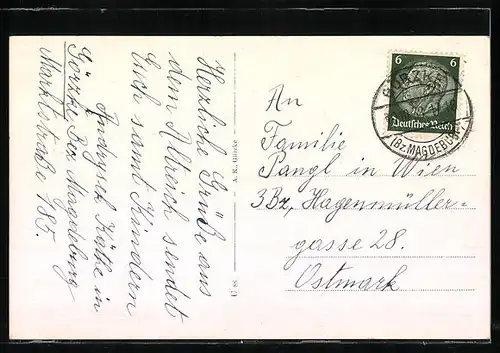 Herzliche Grüße aus
dem Altreich sendet
Euch samt Kindern
Käthe in
Görzke Bez. Magdeburg
Marktstraße 185.
6
6
Deutsches Reich
GÖRZKE
(Bz. MAGDEBURG)
An
Familie
Pangl in Wien
3 Bz, Hagenmüller-
gasse 28.
Ostmark